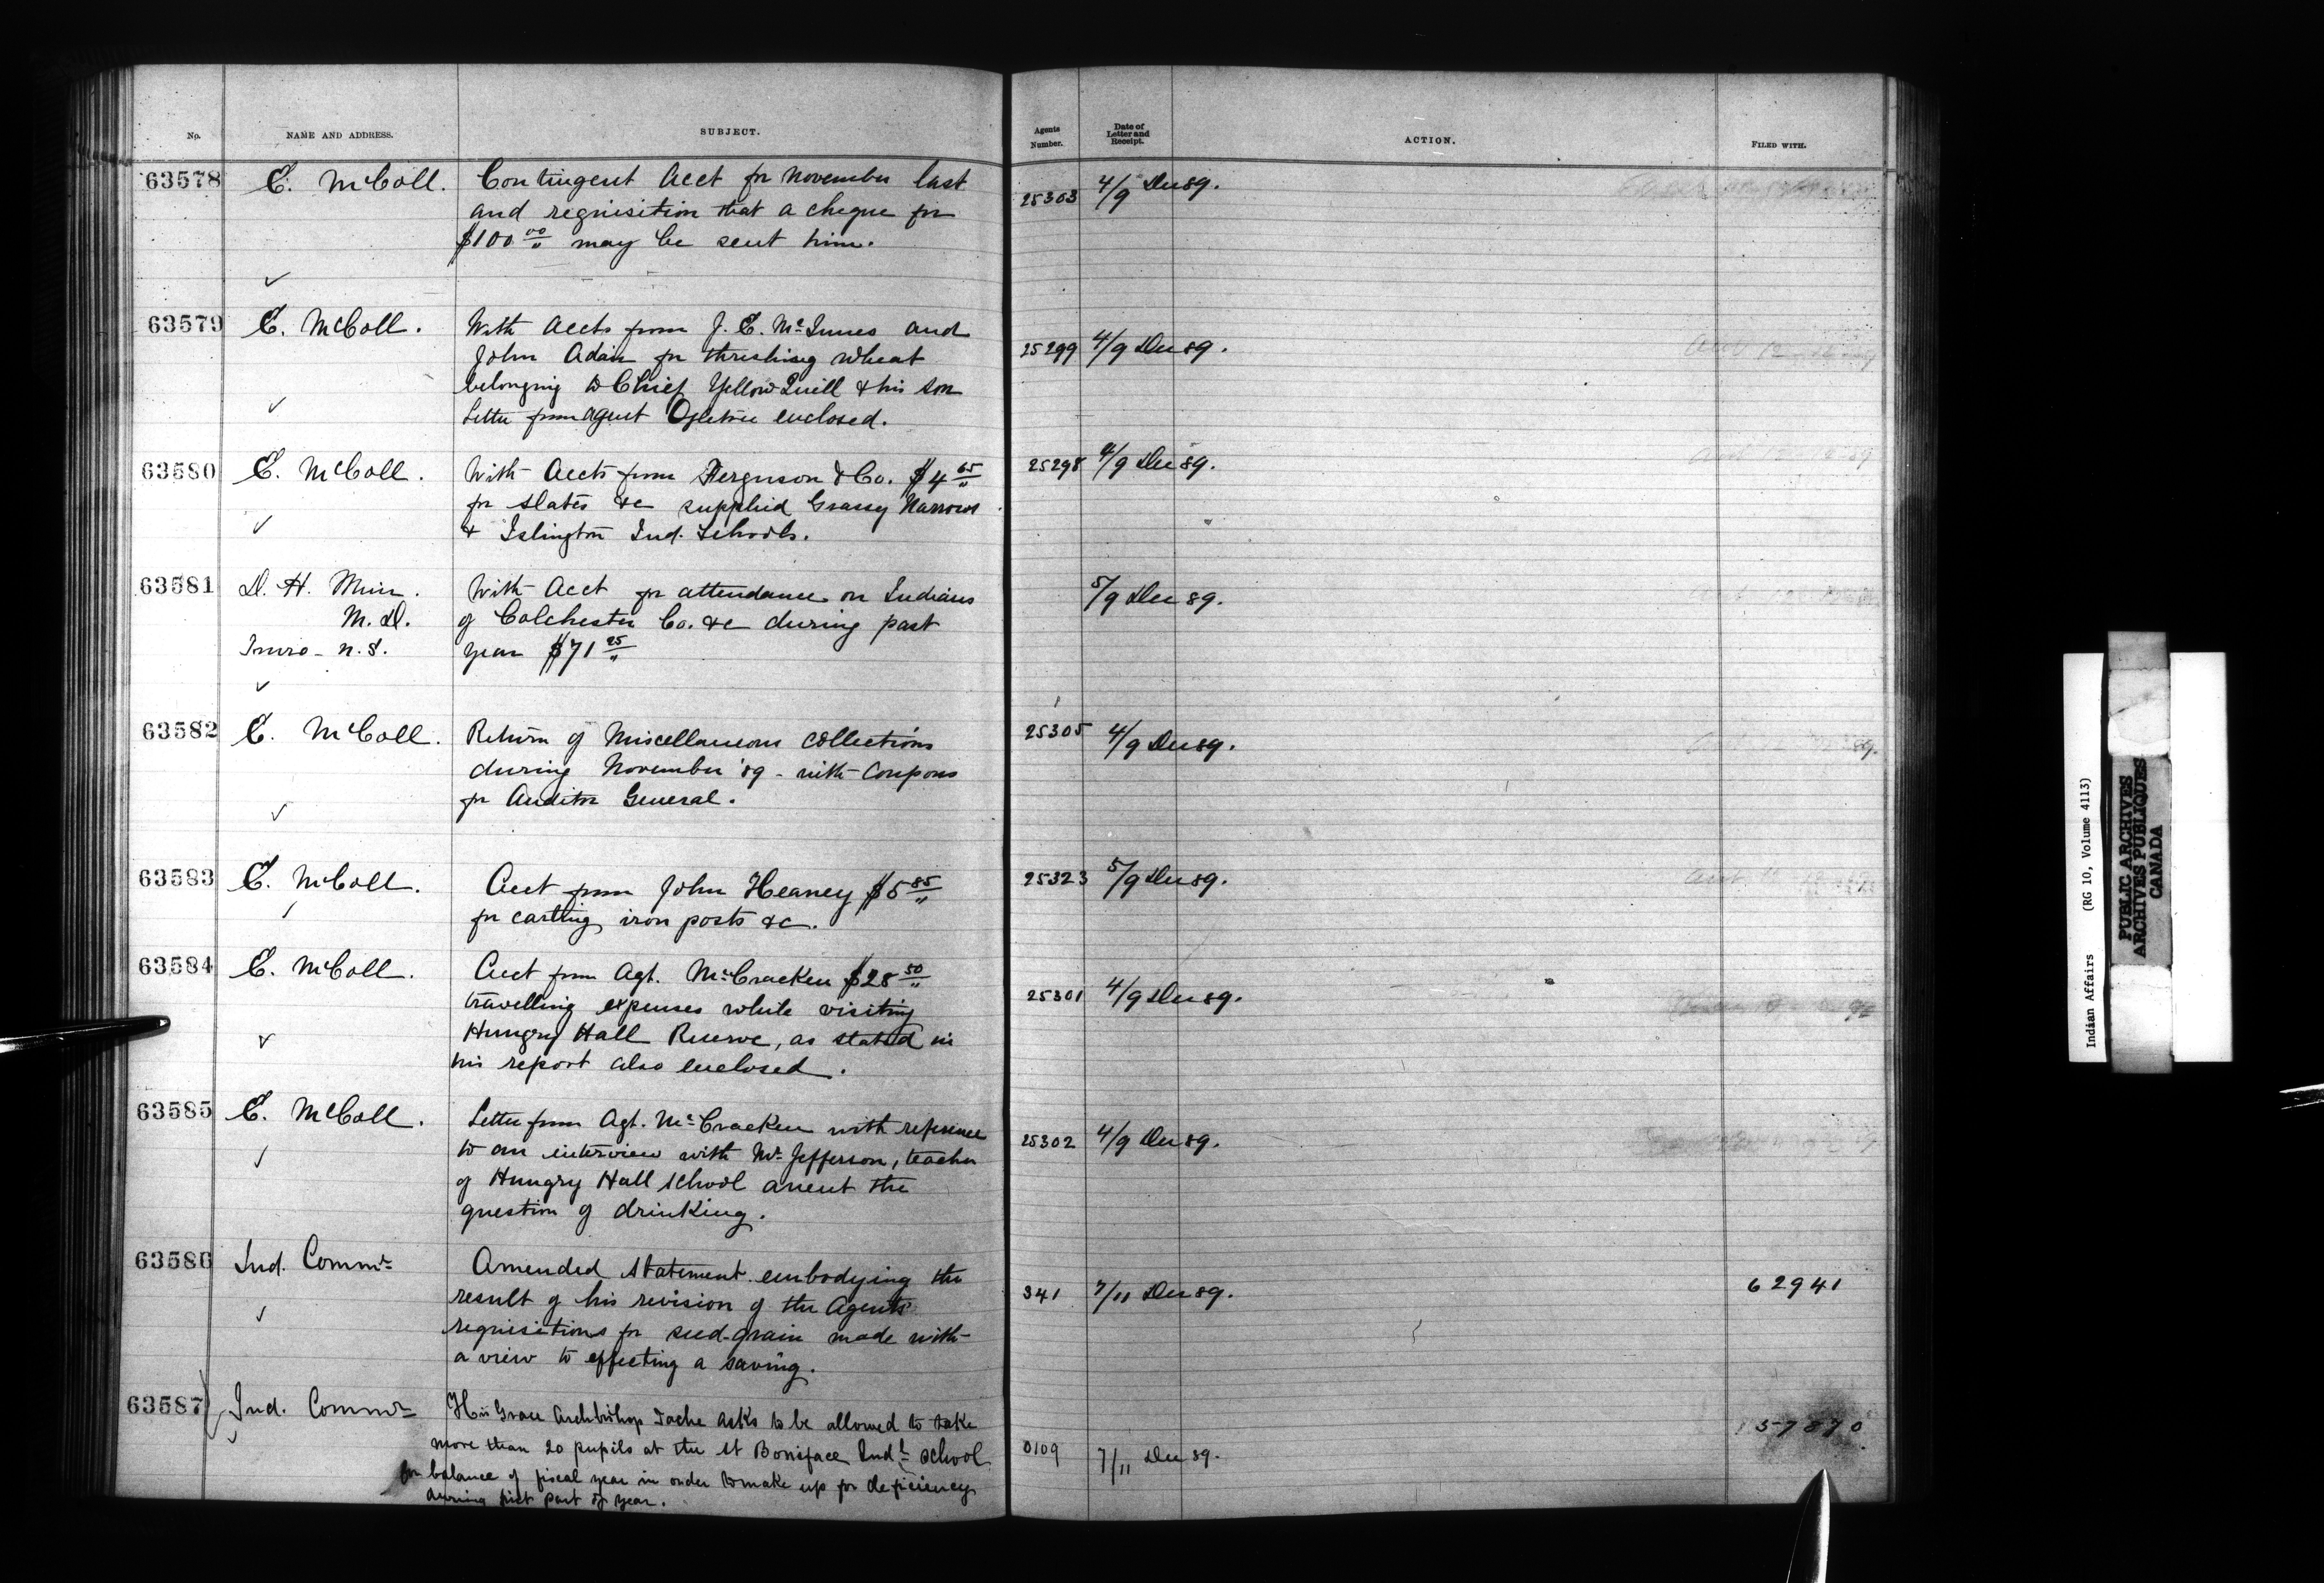 No.
NAME AND ADDRESS.
SUBJECT.
Agents Number.
Date of Letter and Receipt.
ACTION.
FILED WITH.
63578
E. McColl.
Contingent Acct for November last
and requisition that a cheque for
$100 00/" may be sent him.
25303
4/9 Dec 89.
63579
E. McColl.
With Accts from J. E. McInnes and
John Adair for threshing wheat
belonging to Chief Yellow Quill & his son
Letter from Agent Ogletree enclosed.
25299
4/9 Dec 89.
63580
E. McColl.
With Accts from Ferguson & Co. $4 65/"
for slates &c supplied Grassy Narrows
& Islington Ind. Schools.
25298
4/9 Dec 89.
63581
D. H. Muir.
M.D.
Truro - N.S.
With Acct for attendance on Indians
of Colchester Co. &c during past
year $71 25/"
5/9 Dec 89.
63582
E. McColl.
Return of Miscellaneous collections
during November '89 - with Coupons
for Auditor General.
25305
4/9 Dec 89.
63583
E. McColl.
Acct from John Heaney $5 85/"
for carting iron posts &c.
25323
5/9 Dec 89.
63584
E. McColl.
Acct from Agt. McCracken $28 50/"
travelling expenses while visiting
Hungry Hall Reserve, as stated in
his report also enclosed.
25301
4/9 Dec 89.
63585
E. McColl.
Letter from Agt. McCracken with reference
to an interview with Mr Jefferson, teacher
of Hungry Hall School anent the
question of drinking.
25302
4/9 Dec 89.
63586
Ind. Commr
Amended statement embodying the
result of his revision of the Agents'
requisitions for seed-grain made with
a view to effecting a saving.
341
7/11 Dec 89.
62941
63587
Ind. Commr
His Grace Archbishop Tache asks to be allowed to take
more than 20 pupils at the St Boniface Indl School
for balance of fiscal year in order to make up for deficiency
during first part of year.
0109
7/11 Dec 89.
57870
Indian Affairs (RG 10, Volume 4113)
PUBLIC ARCHIVES
ARCHIVES PUBLIQUES
CANADA